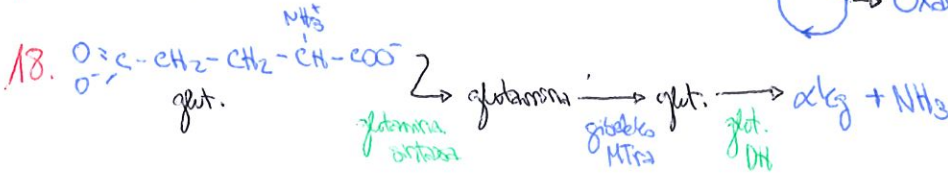 → Oxa
NH₃⁺
18. O=C-CH₂-CH₂-CH-COO⁻
O⁻
glut. → glutamina → glut. → αkg + NH₃
glutamina sintasa gibeleko MTra glut. DH